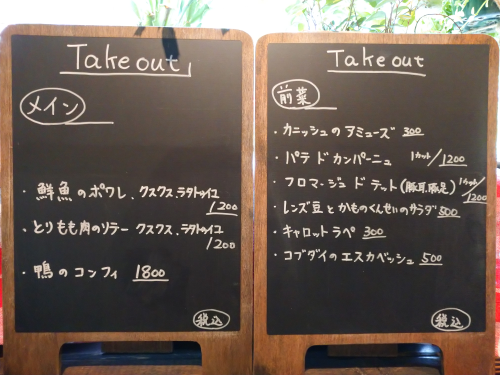 Take out
メイン
・鮮魚のポワレ、クスクス、ラタトゥイユ
1200
・とりもも肉のソテー クスクス、ラタトゥイユ
1200
・鴨のコンフィ 1800
税込
Take out
前菜
・カニッシュのアミューズ 300
・パテ ド カンパーニュ 1カット/1200
・フロマージュ ド テット(豚耳、豚足) 1カット/1200
・レンズ豆とかものくんせいのサラダ 500
・キャロットラペ 300
・コブダイのエスカベッシュ 500
税込